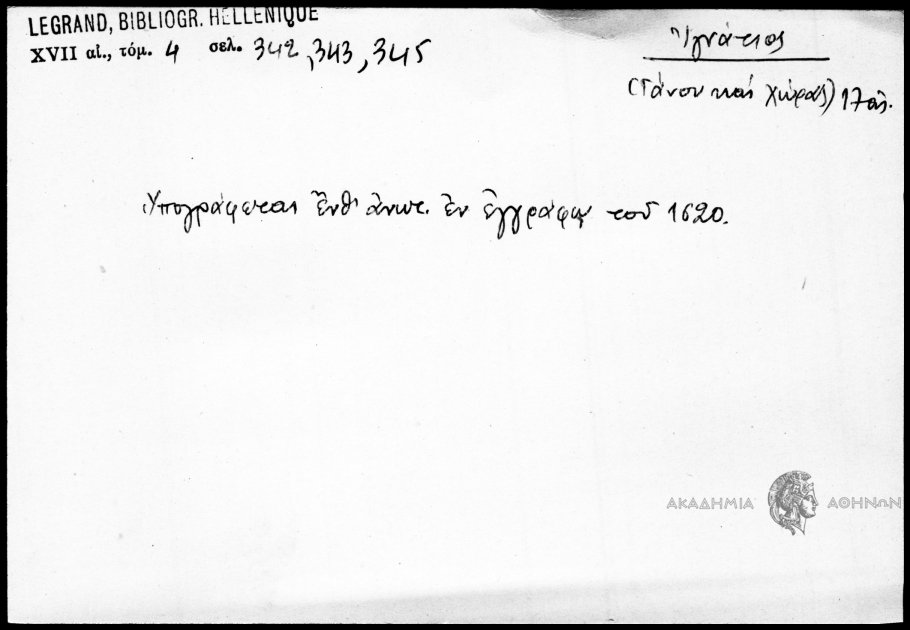 LEGRAND, BIBLIOGR. HELLENIQUE
XVII αἰ., τόμ. 4 σελ. 342, 343, 345
Ἰγνάτιος
(Τάνου καὶ Χώρας) 17 αἰ.
Ὑπογράφεται ἔνθ' ἀνωτ. ἐν ἐγγράφῳ τοῦ 1620.
ΑΚΑΔΗΜΙΑ ΑΘΗΝΩΝ